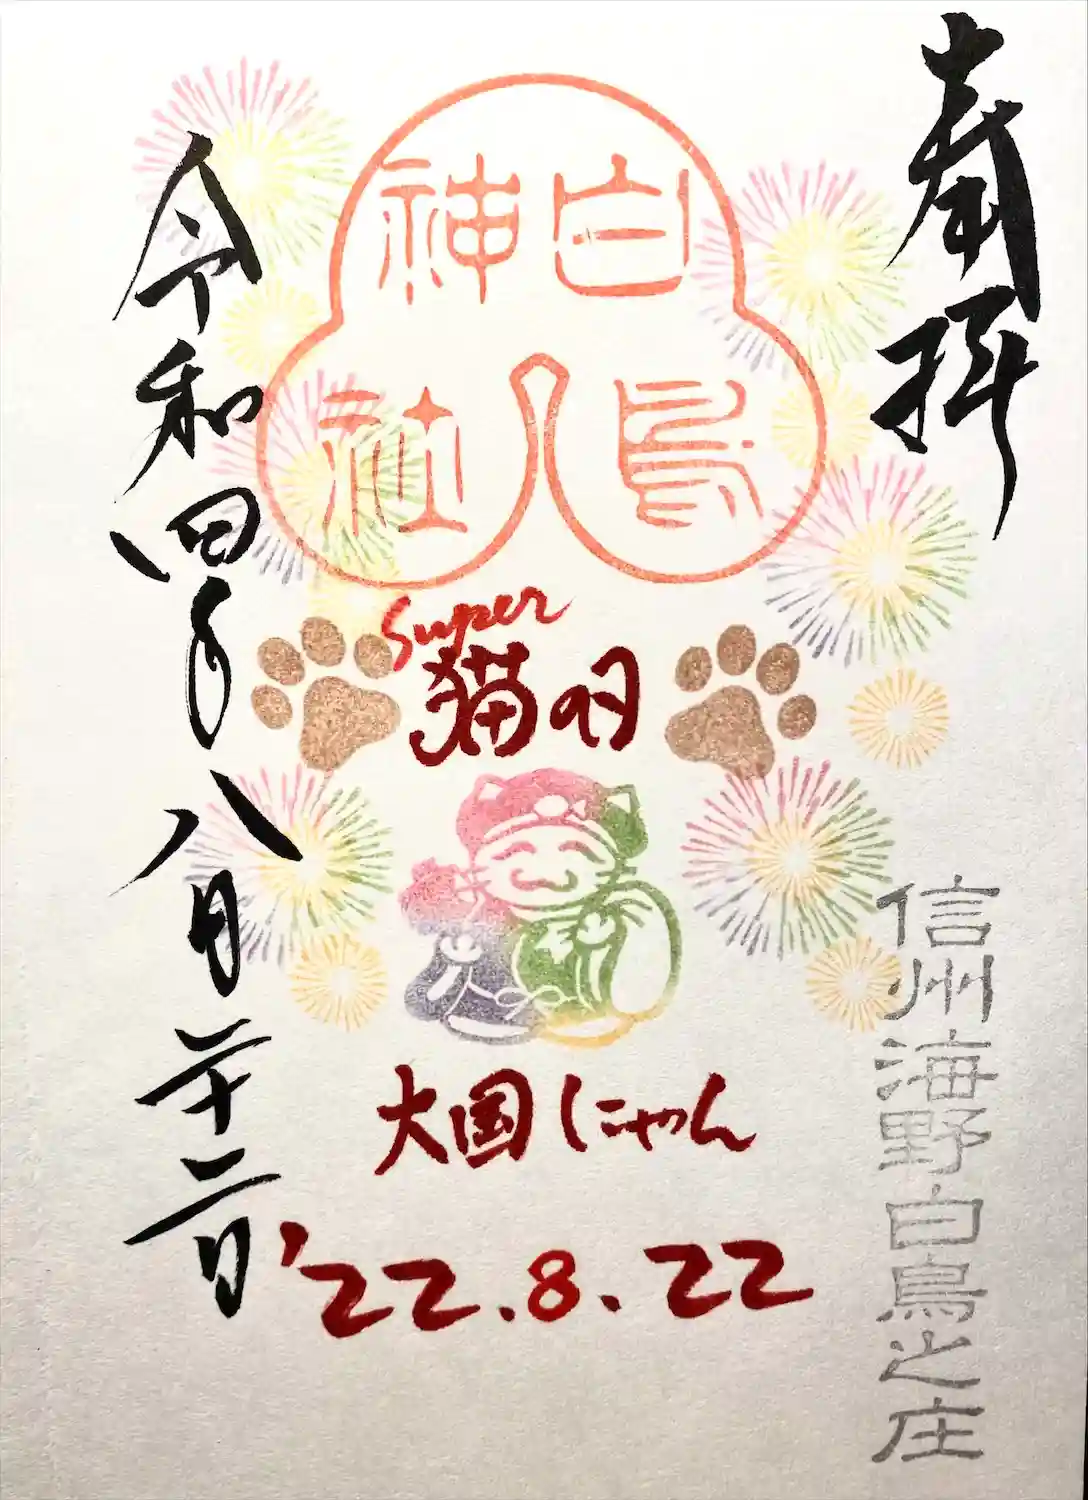 奉拝
白鳥
神社
Super
猫の日
大国にゃん
'22.8.22
信州海野白鳥之庄
令和四年八月二十二日